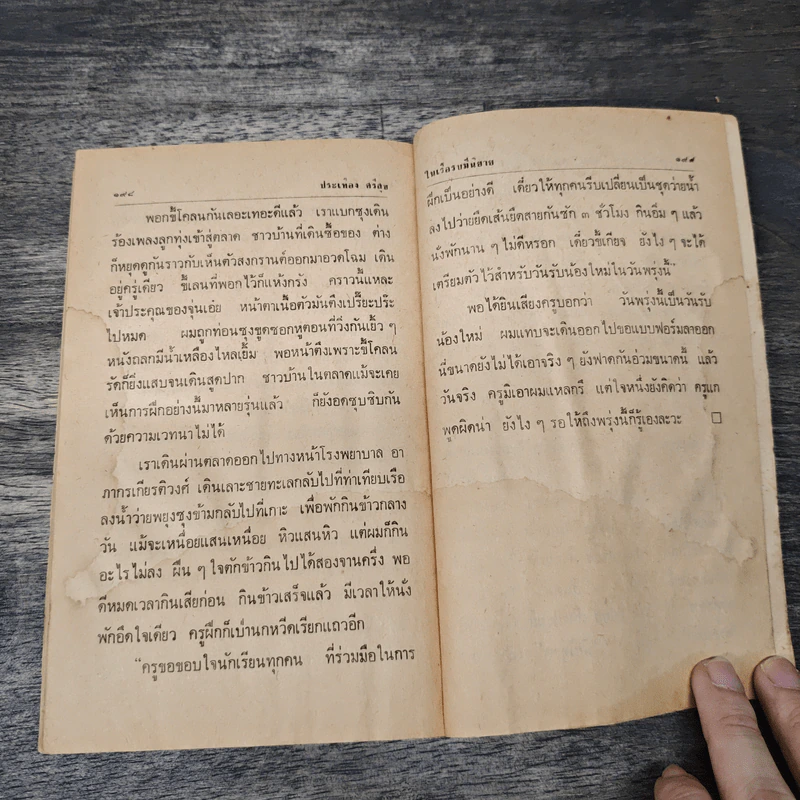 ๑๙๘ ประเทือง ศรีสุข
พอกขี้โคลนกันเลอะเทอะดีแล้ว เราแบกซุงเดิน
ร้องเพลงลูกทุ่งเข้าสู่ตลาด ชาวบ้านที่เดินซื้อของ ต่าง
ก็หยุดดูกันราวกับเห็นตัวสงกรานต์ออกมาอวดโฉม เดิน
อยู่ครู่เดียว ขี้เลนที่พอกไว้ก็แห้งกรัง คราวนี้แหละ
เจ้าประคุณของจุ่นเอ๋ย หน้าตาเนื้อตัวมันตึงเปรี๊ยะปร๊ะ
ไปหมด ผมถูกท่อนซุงขูดซอกหูตอนที่วิ่งกันเยิ้ว ๆ
หนังถลกมีน้ำเหลืองไหลเยิ้ม พอหน้าตึงเพราะขี้โคลน
รัดก็ยิ่งแสบจนเดินสูดปาก ชาวบ้านในตลาดแม้จะเคย
เห็นการฝึกอย่างนี้มาหลายรุ่นแล้ว ก็ยังอดซุบซิบกัน
ด้วยความเวทนาไม่ได้
เราเดินผ่านตลาดออกไปทางหน้าโรงพยาบาล อา
ภากรเกียรติวงศ์ เดินเลาะชายทะเลกลับไปที่ท่าเทียบเรือ
ลงน้ำว่ายพยุงซุงข้ามกลับไปที่เกาะ เพื่อพักกินข้าวกลาง
วัน แม้จะเหนื่อยแสนเหนื่อย หิวแสนหิว แต่ผมก็กิน
อะไรไม่ลง ฝืน ๆ ใจตักข้าวกินไปได้สองจานครึ่ง พอ
ดีหมดเวลากินเสียก่อน กินข้าวเสร็จแล้ว มีเวลาให้นั่ง
พักอึดใจเดียว ครูฝึกก็เป่านกหวีดเรียกแถวอีก
“ครูขอขอบใจนักเรียนทุกคน ที่ร่วมมือในการ
ในเรือรบมีนิยาย ๑๙๙
ฝึกเป็นอย่างดี เดี๋ยวให้ทุกคนรีบเปลี่ยนเป็นชุดว่ายน้ำ
ลงไปว่ายยืดเส้นยืดสายกันซัก ๓ ชั่วโมง กินอิ่ม ๆ แล้ว
นั่งพักนาน ๆ ไม่ดีหรอก เดี๋ยวขี้เกียจ ยังไง ๆ จะได้
เตรียมตัวไว้สำหรับวันรับน้องใหม่ในวันพรุ่งนี้”
พอได้ยินเสียงครูบอกว่า วันพรุ่งนี้เป็นวันรับ
น้องใหม่ ผมแทบจะเดินออกไปขอแบบฟอร์มลาออก
นี่ขนาดยังไม่ได้เอาจริง ๆ ยังฟาดกันอ่วมขนาดนี้ แล้ว
วันจริง ครูมิเอาผมแหลกรึ แต่ใจหนึ่งยังคิดว่า ครูแก
พูดผิดน่า ยังไง ๆ รอให้ถึงพรุ่งนี้ก็รู้เองละวะ □